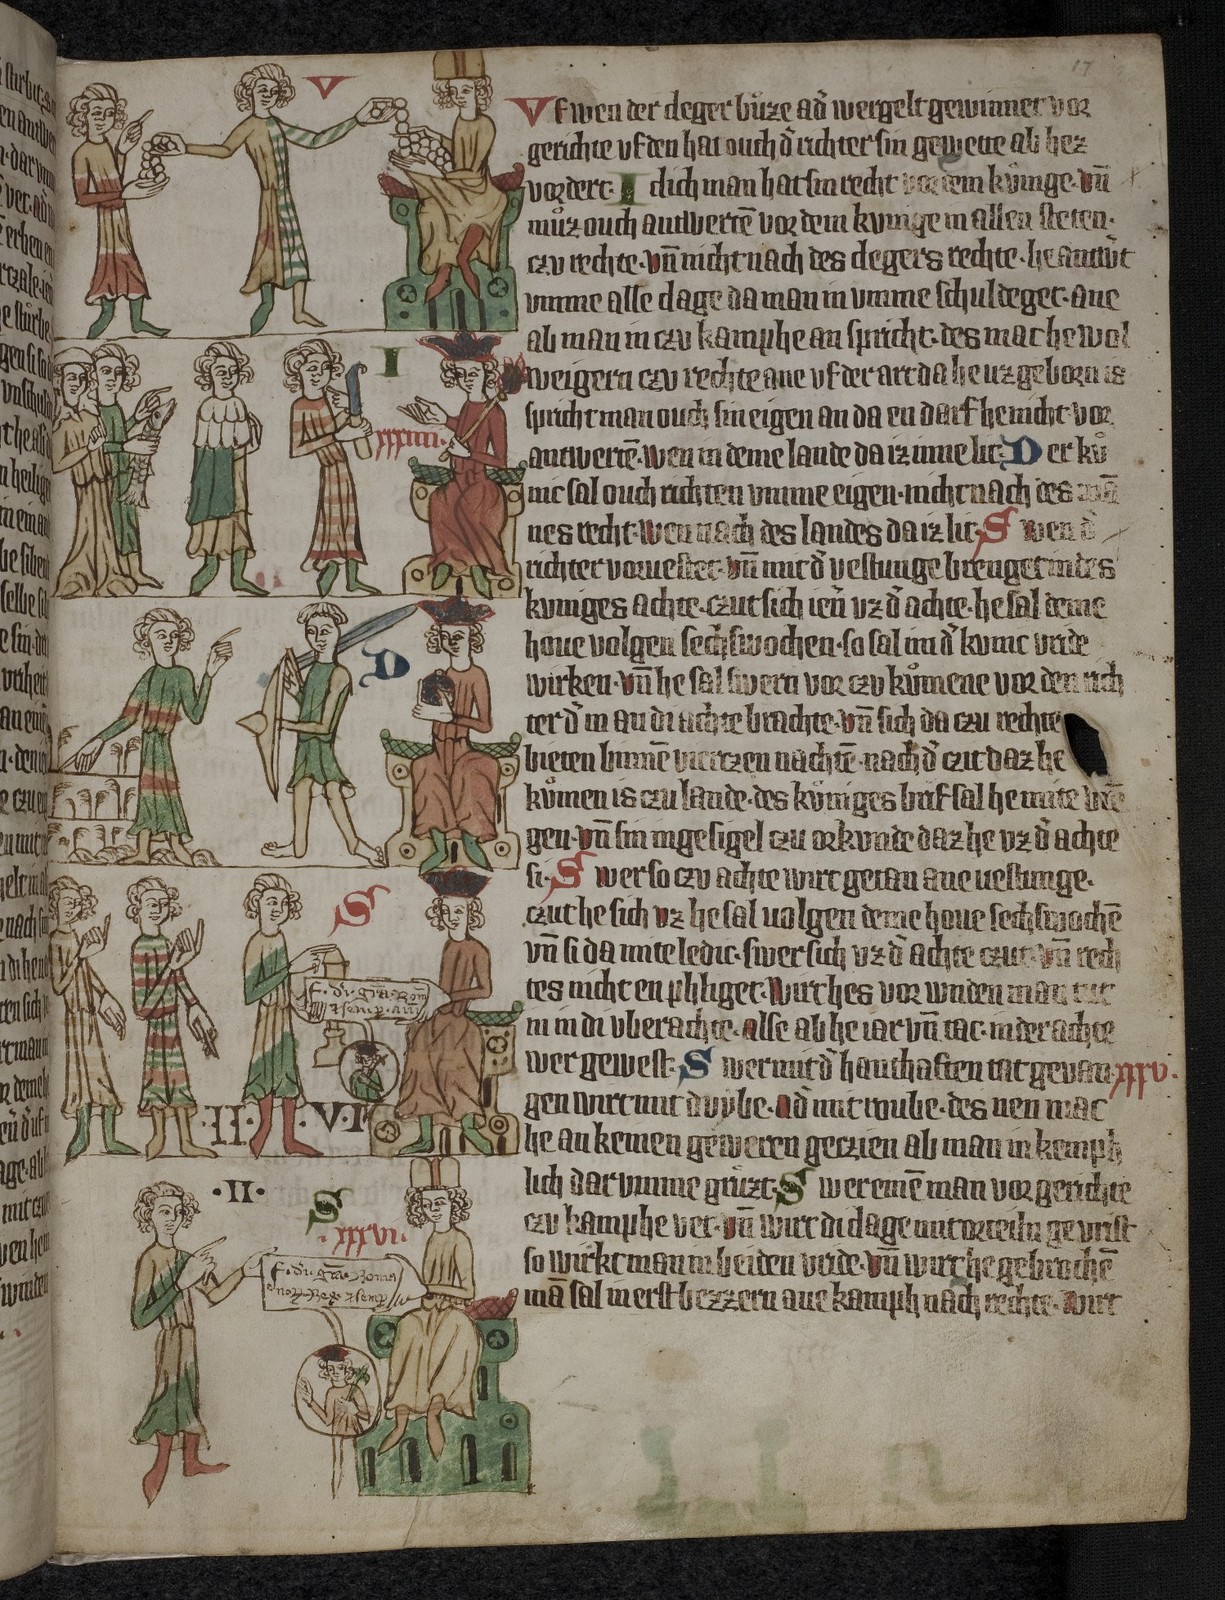 17
Vf wen der cleger bůze ad̕ wergelt gewinnet vor
gerichte vf den hat ouch d̕ richter sin gewette ab hez
vordert. I clich man hat sin recht vor dem kůnige. vn̄
můz ouch antwertē vor dem kvnige in allen steten.
czv rechte. vn̄ nicht nach des clegers rechte. he antw̕t
vmme alle clage da man in vmme schuldeget. ane
ab man in czv kamphe an spricht. des mac he wol
weigern czv rechte ane vf der art da he uz geborn is
spricht man ouch sin eigen an da en darf he nicht vor
antwertē. wen in deme lande da iz inne lit. D er ků
nic sal ouch richten vmme eigen. nicht nach des mā
nes recht. wen nach des landes da iz lit. S wen d̕
richter voruestet. vn̄ mit d̕ vestunge brenget in des
kvniges achte. czut sich ien̕ vz d̕ achte. he sal deme
houe volgen sechs wochen. so sal im d̕ kvnic vride
wirken. vn̄ he sal swern vor czv kůmene vor den rich
ter d̕ in an di achte brachte. vn̄ sich da czu rechte
bieten binnē viertzen nachtē. nach d̕ czit daz he
kůmen is czu lande. des kůniges brif sal he mite bren
gen. vn̄ sin ingesigel czu orkvnde daz he vz d̕ achte
si. S wer so czv achte wirt getan ane uestunge.
czut he sich vz he sal uolgen deme houe sechs wochē
vn̄ si da mite ledic. swer sich vz d̕ achte czut. vn̄ rech
tes nicht en phliget. wirt hes vor wnden man tut
in in di vberachte. alse ab he iar vn̄ tac. in der achte
wer gewest. S wer mit d̕ hanthaften tat gevan xxxv.
gen wirt mit dvybe. ad̕ mit roube. des nen mac
he an keinen geweren geczien ab man in kemph
lich dar vmme grůzt. S wer einē man vor gerichte
czv kamphe vet. vn̄ wirt di clage mit orteiln gevrist
so wirkt man in beiden vride. vn̄ wirt he gebrochē
mā sal in erst bezzern ane kamph nach rechte. wirt
V
I
xxxiiii.
D
S
f. di. grā. Rom
·II· V·I
·II·
S
xxxvi.
f. di. grā. Roma